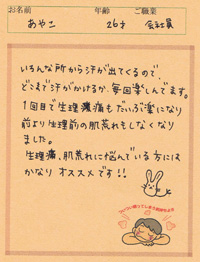 お名前 年齢 ご職業
あやこ 26才 会社員
いろんな所から汗が出てくるので、
どこまで汗がかけるか、毎回楽しんでます。
1回目で生理痛もだいぶ楽になり
前より生理前の肌荒れもしなくなり
ました。
生理痛、肌荒れに悩んでいる方には
かなりオススメです!!